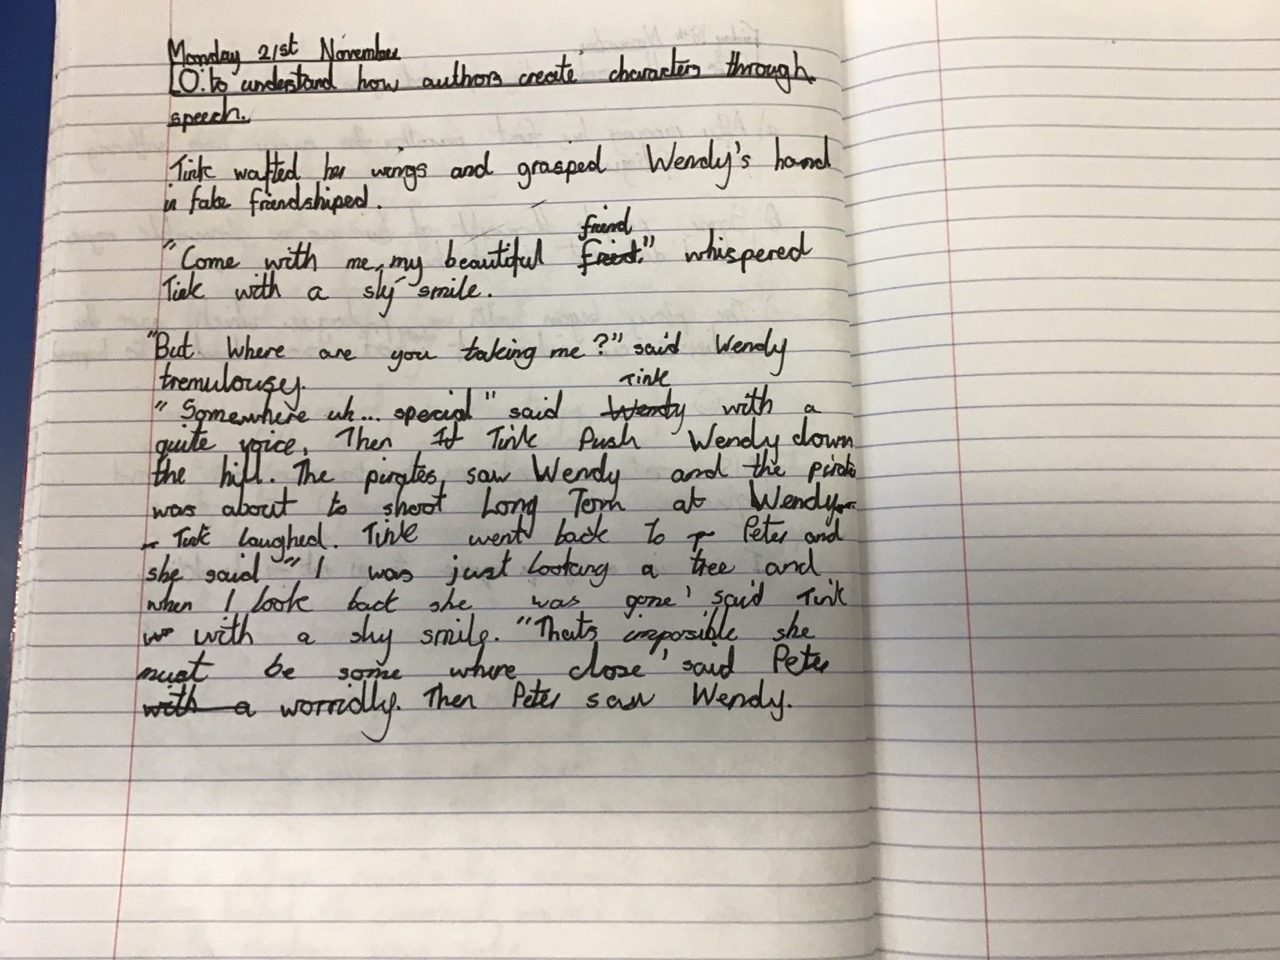 Monday 21st November
LO: to understand how authors create characters through
speech.
Tink wafted her wings and grasped Wendy's hand
in fake friendshiped.
friend
"Come with me, my beautiful friend." whispered
Tink with a sly smile.
"But where are you taking me?" said Wendy
tremulousy.
Tink
"Somewhere uh... special" said Wendy with a
quite voice. Then It Tink Push Wendy down
the hill. The pirates saw Wendy and the pirate
was about to shoot Long Tom at Wendy
Tink laughed. Tink went back to Peter and
she said "I was just looking a tree and
when I look back she was gone' said Tink
with a shy smile. "Thats imposible she
must be some where close' said Peter
with a worridly. Then Peter saw Wendy.